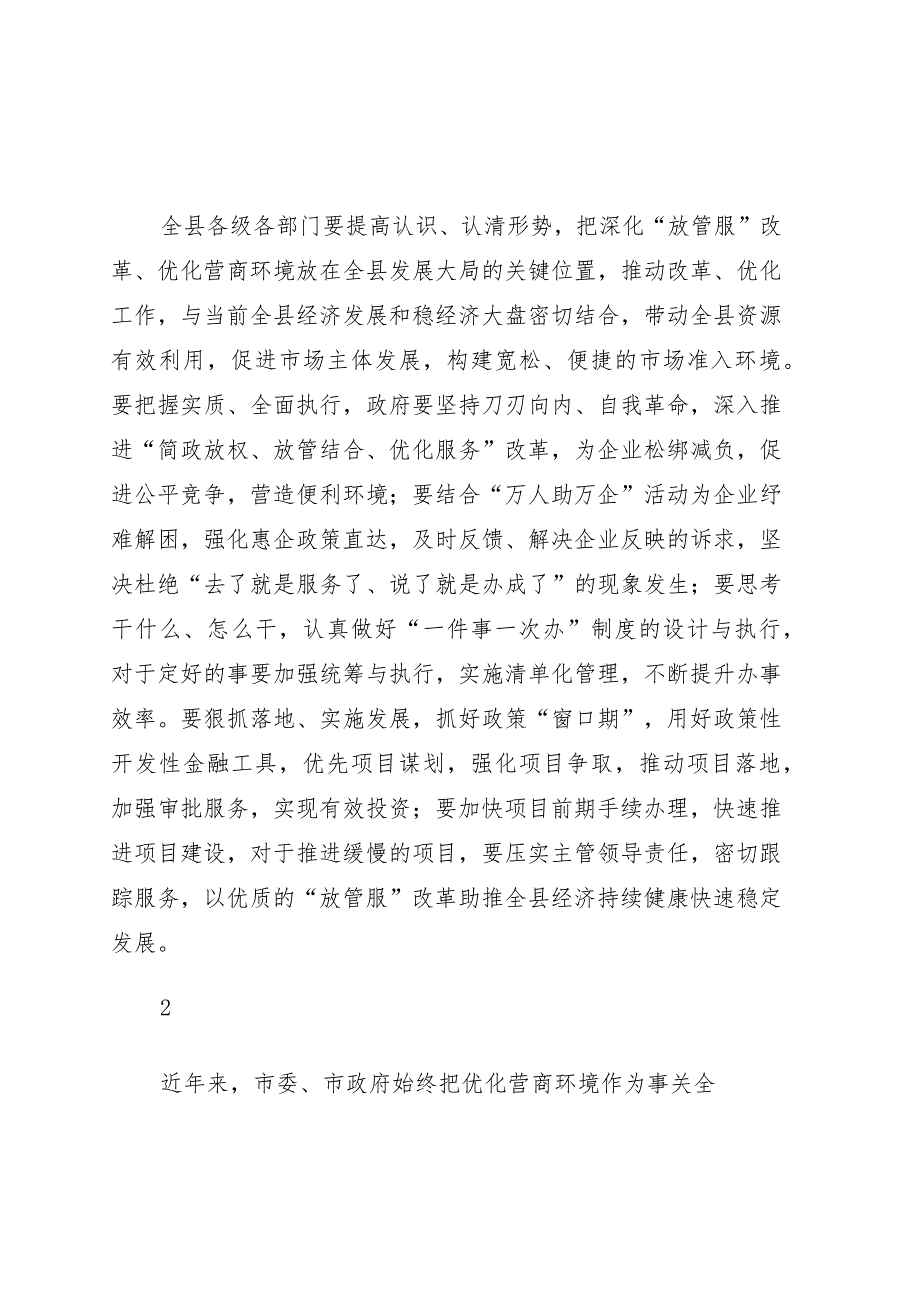 全县各级各部门要提高认识、认清形势，把深化“放管服”改
革、优化营商环境放在全县发展大局的关键位置，推动改革、优化
工作，与当前全县经济发展和稳经济大盘密切结合，带动全县资源
有效利用，促进市场主体发展，构建宽松、便捷的市场准入环境。
要把握实质、全面执行，政府要坚持刀刃向内、自我革命，深入推
进“简政放权、放管结合、优化服务”改革，为企业松绑减负，促
进公平竞争，营造便利环境；要结合“万人助万企”活动为企业纾
难解困，强化惠企政策直达，及时反馈、解决企业反映的诉求，坚
决杜绝“去了就是服务了、说了就是办成了”的现象发生；要思考
干什么、怎么干，认真做好“一件事一次办”制度的设计与执行，
对于定好的事要加强统筹与执行，实施清单化管理，不断提升办事
效率。要狠抓落地、实施发展，抓好政策“窗口期”，用好政策性
开发性金融工具，优先项目谋划，强化项目争取，推动项目落地，
加强审批服务，实现有效投资；要加快项目前期手续办理，快速推
进项目建设，对于推进缓慢的项目，要压实主管领导责任，密切跟
踪服务，以优质的“放管服”改革助推全县经济持续健康快速稳定
发展。
2
近年来，市委、市政府始终把优化营商环境作为事关全